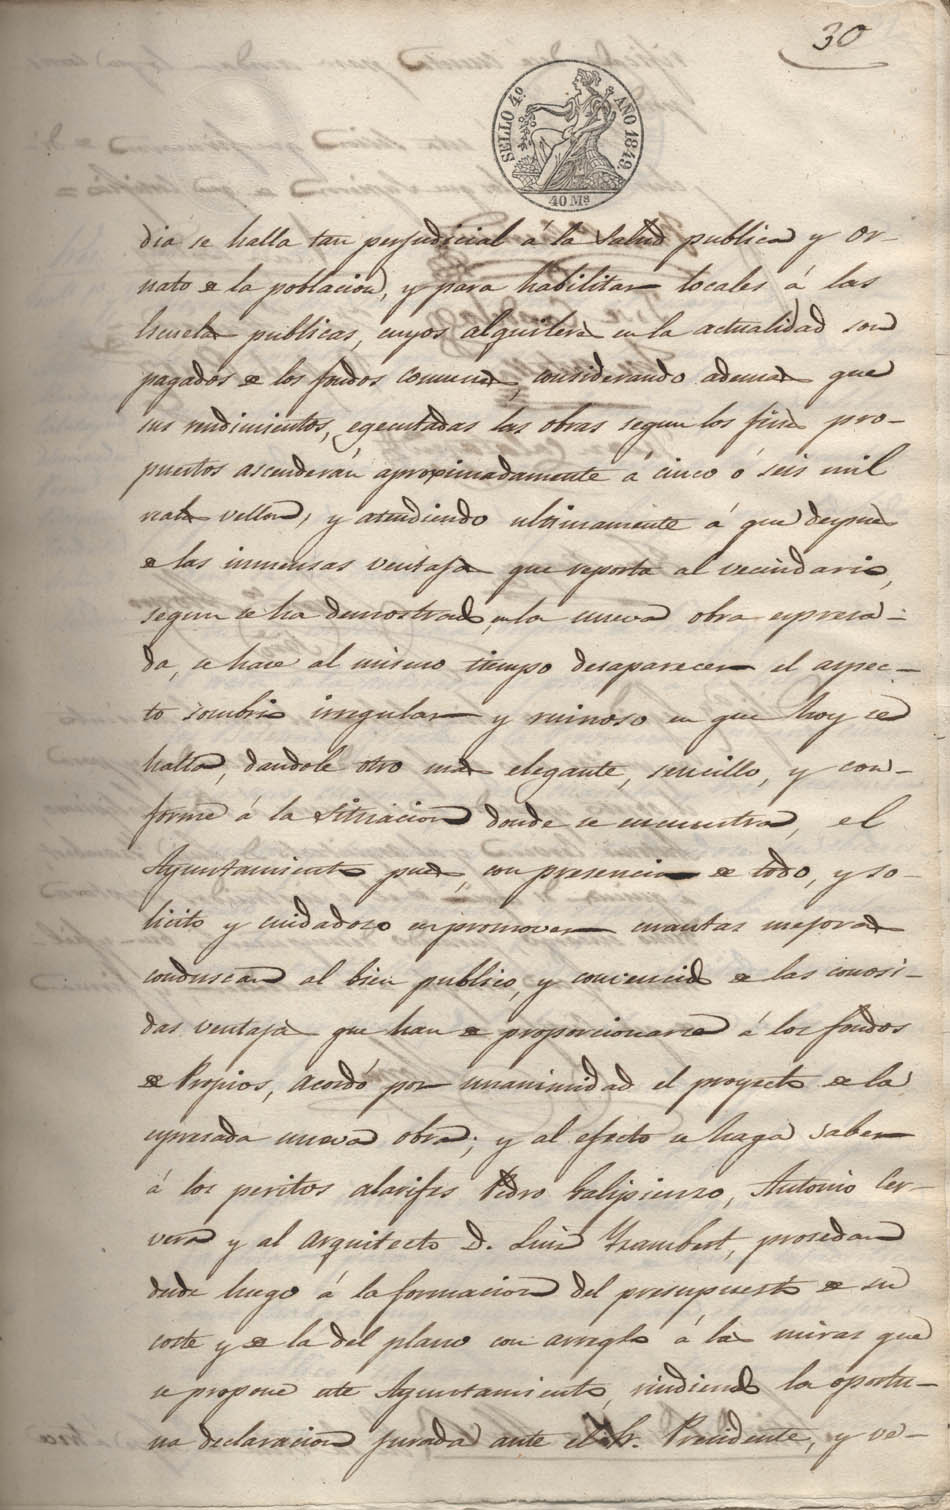 30
SELLO 4º. AÑO 1849.
40 Ms
dia se halla tan perjudicial á la salud publica y or-
nato de la poblacion, y para habilitar locales á las
Escuelas publicas, cuyos alquileres en la actualidad son
pagados de los fondos comunes, considerando ademas que
sus rendimientos, egecutadas las obras segun los fines pro-
puestos ascenderán aproximadamente á cinco ó seis mil
reales vellon, y atendiendo ultimamente á que despues
de las inmensas ventajas que reporta al vecindario,
segun se ha demostrado, en la nueva obra espresa-
da, se hace al mismo tiempo desaparecer el aspec-
to sombrio irregular y ruinoso en que hoy se
halla, dandole otro mas elegante, sencillo, y con-
forme á la situacion donde se encuentra, el
Ayuntamiento pues, con presencia de todo, y so-
licito y cuidadoso en promover cuantas mejoras
conduscan al bien publico, y convencido de las conosi-
das ventajas que han de proporcionarse á los fondos
de Propios, acordó por unanimidad el proyecto de la
espresada nueva obra; y al efecto se haga saber
á los peritos alarifes Pedro Galipienzo, Antonio Cer-
vera y al Arquitecto D. Luis Ysambert, prosedan
desde luego á la formacion del presupuesto de su
coste y de la del plano con arreglo á las miras que
se propone este Ayuntamiento, rindiendo la oportu-
na declaracion jurada ante el Sr. Presidente, y ve-